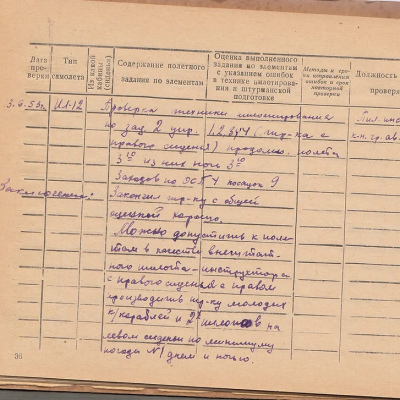 Дата про- верки
Тип самолета
Из какой кабины (сиденья)
Содержание полетного задания по элементам
Оценка выполненного задания по элементам с указанием ошибок в технике пилотирова- ния и штурманской подготовке
Методы и сро- ки исправления ошибок и срок повторной проверки
Должность
проверя
3.6.53г. ИЛ-12 Проверка техники пилотирования Пил. инс
по зад 2 упр. 1,2,3 и 4 (тр-ка с к-н. гр. ав.
правого сиденья) продолж. полёта
3 из них ночь 3
Заходов по ОСП 4 посадок 9
Заключение: Закончил тр-ку с общей
оценкой хорошо.
Можно допустить к поле-
там в качестве внештат-
ного пилота-инструктора
с правого сиденья с правом
производить тр-ку молодых
к/кораблей и 2х пилотов на
левом сиденьи по минимуму
погоды №1 днем и ночью.
36